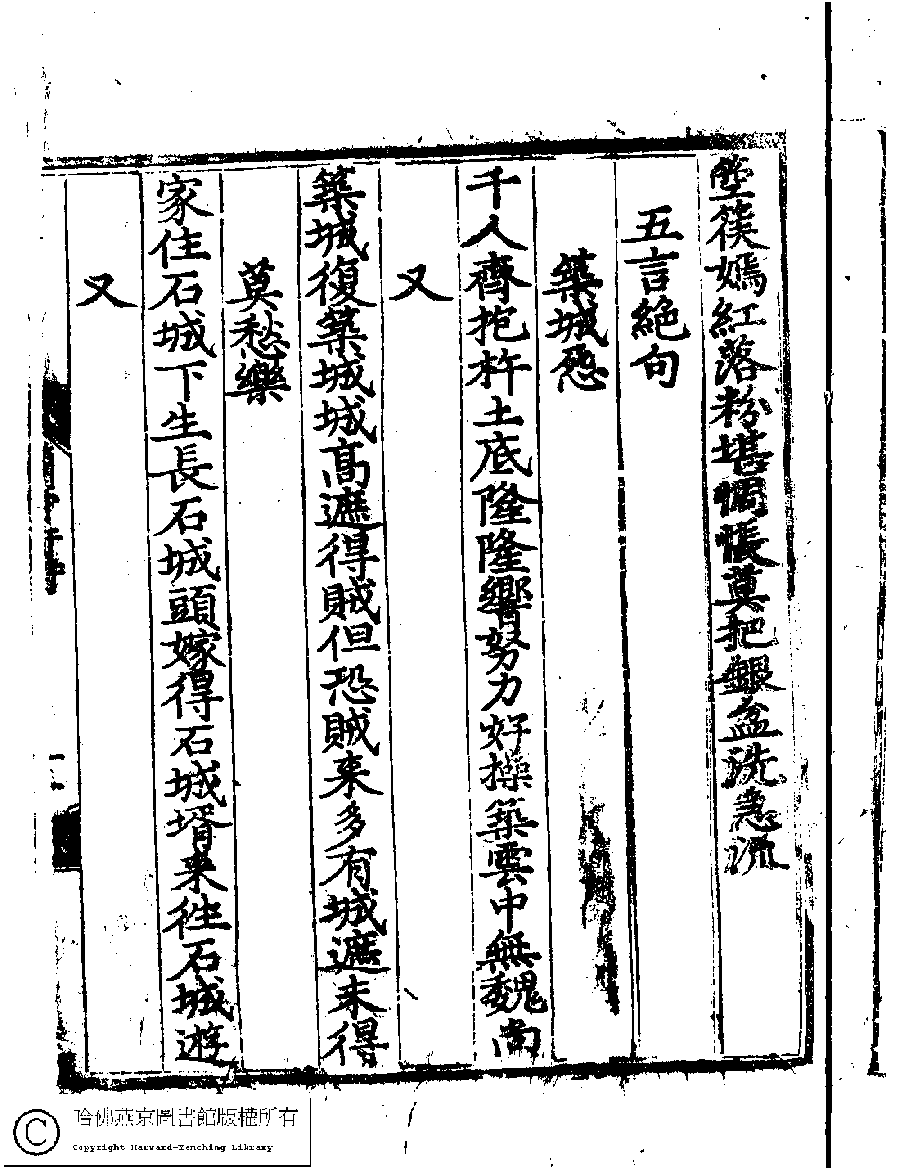 堕篌嫣紅落粉堪惆悵莫把銀盆洗急流
五言絶句
築城怨
千人齊抱杵土底隆隆響努力好操築雲中無魏尚
又
築城復築城城高遮得賊但恐賊来多有城遮未得
莫愁樂
家住石城下生長石城頭嫁得石城壻来往石城遊
又
哈佛燕京圖書館版權所有
Copyright Harvard-Yenching Library